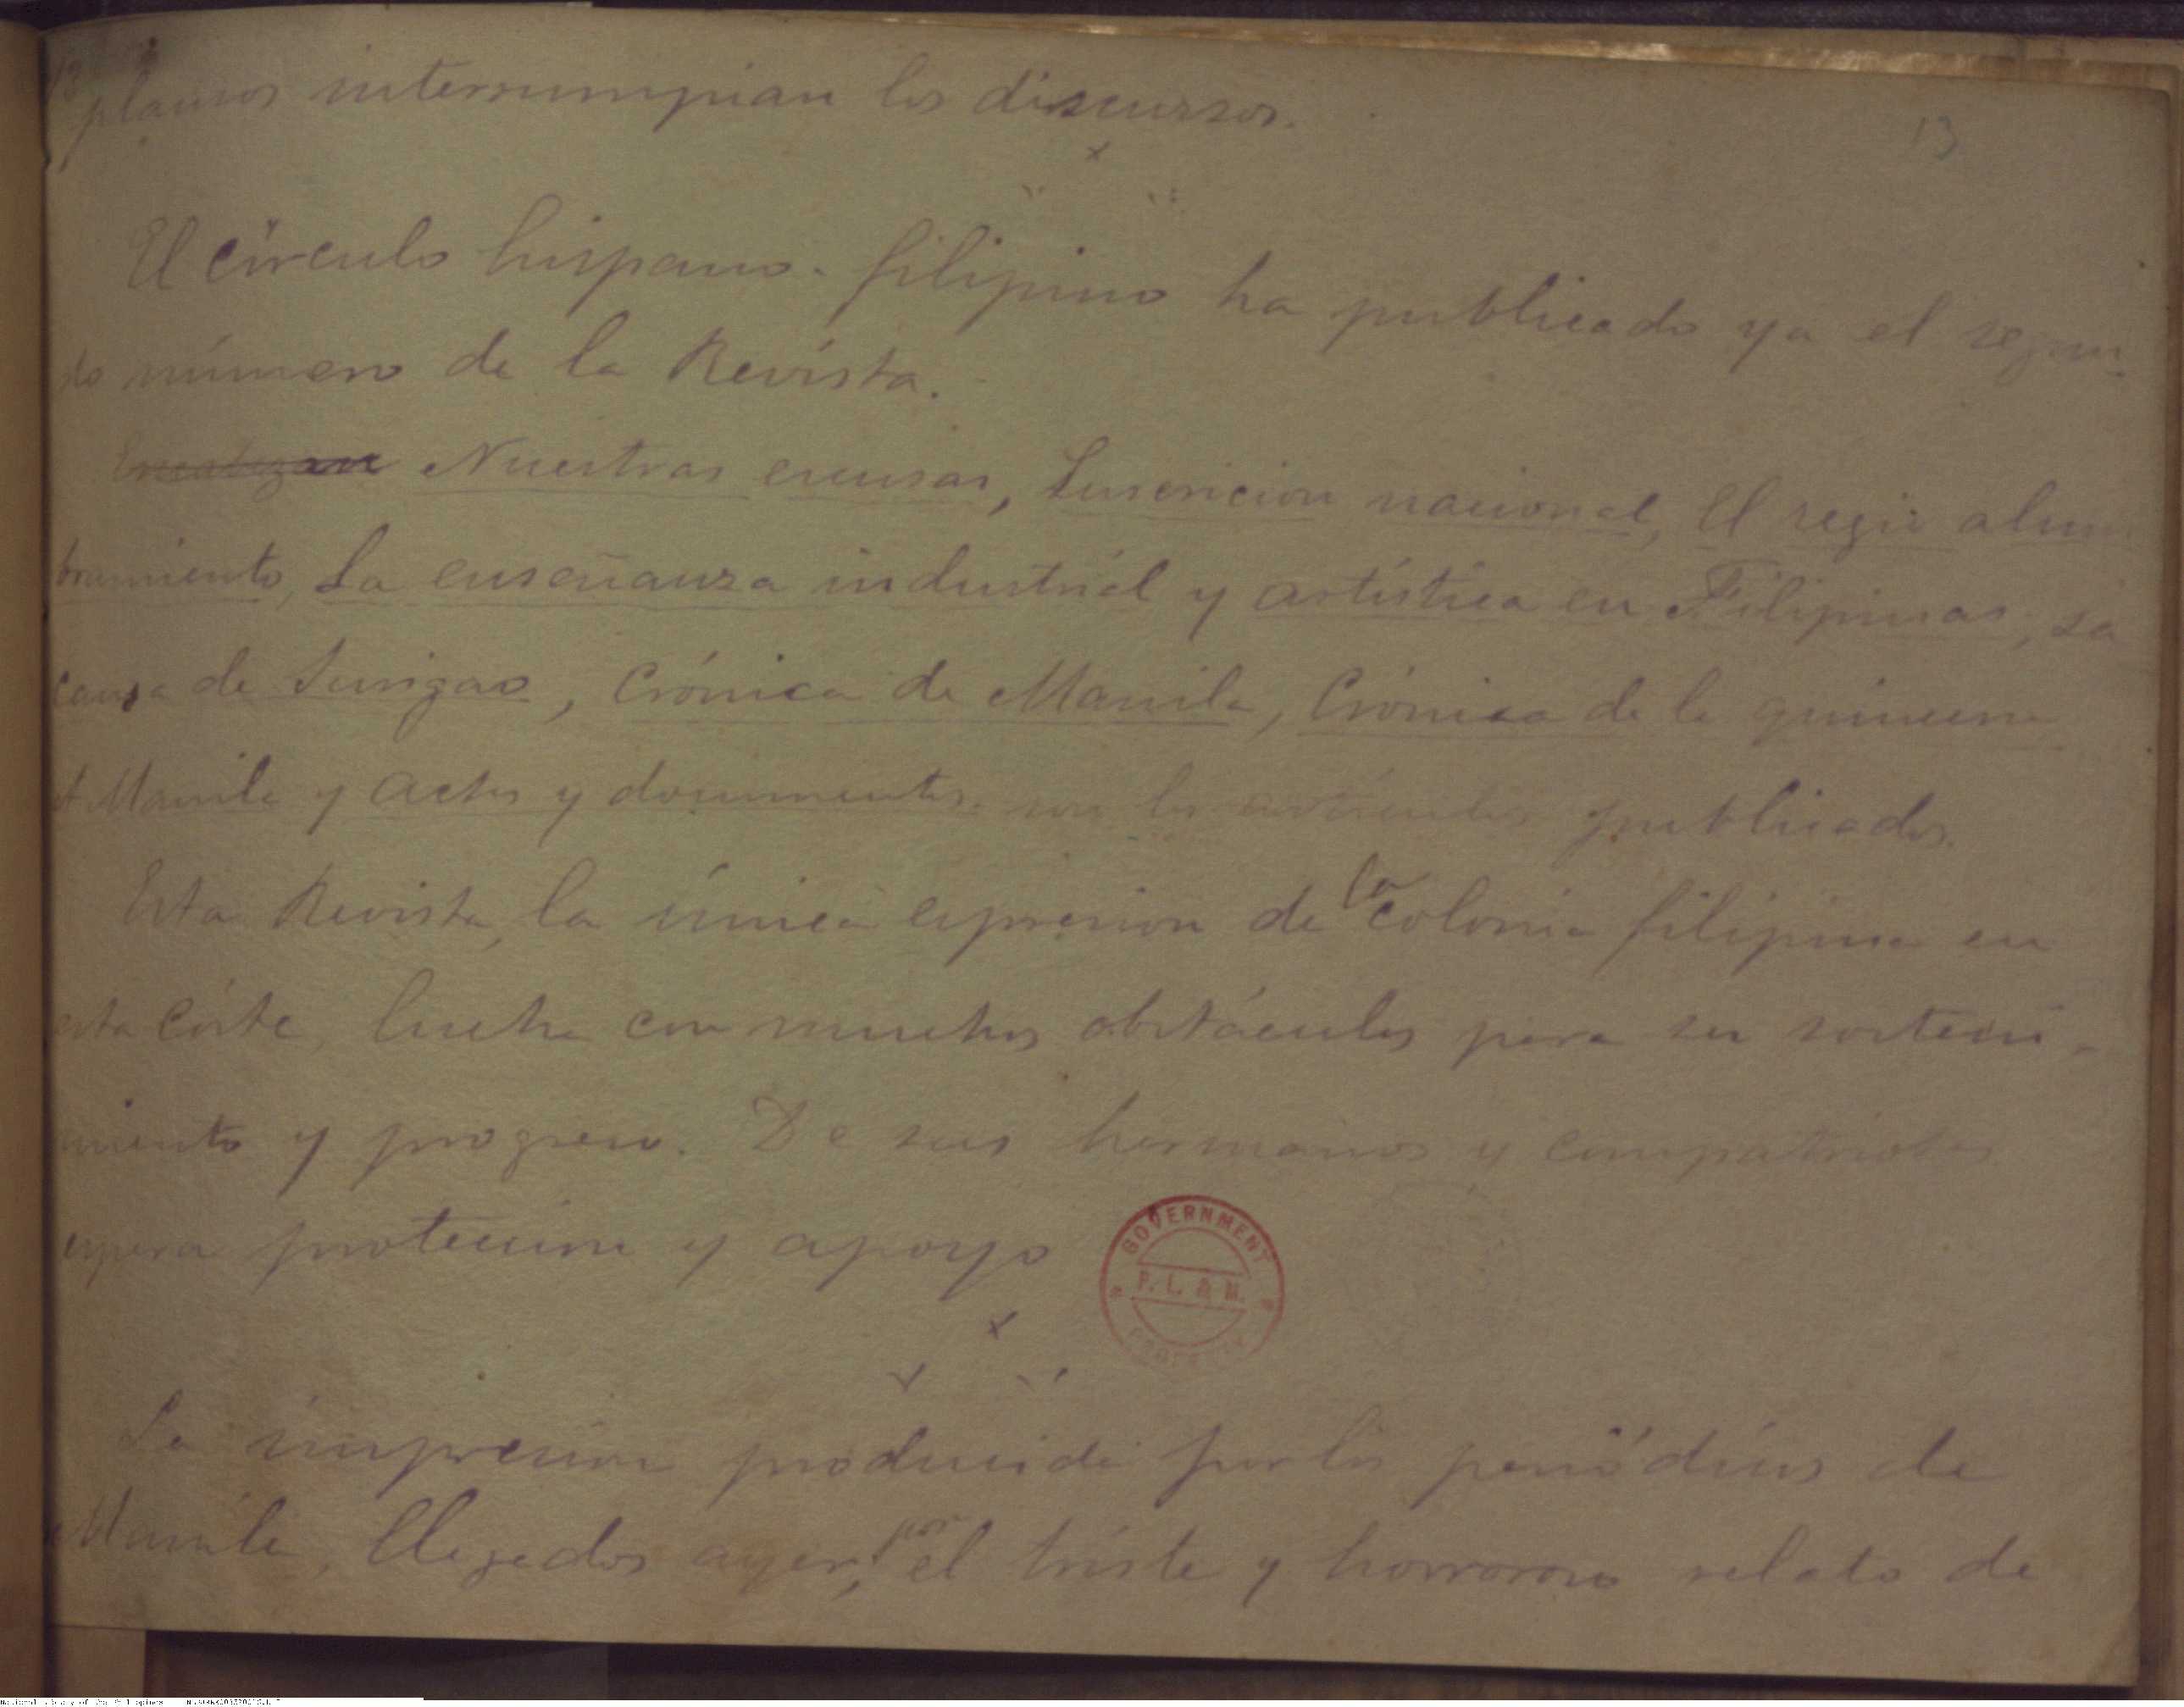 13
plausos interrumpian los discursos.
13
x
El círculo hispano-filipino ha publicado ya el segun-
do número de la Revista.
Nuestras escusas, Suscricion nacional, El regio alum-
bramiento, La enseñanza industrial y artística en Filipinas, La
causa de Surigao, Crónica de Manila, Crónica de la quincena
Manila y Actos y documentos son los artículos publicados.
Esta Revista, la única espresion de la colonia filipina en
esta Córte, lucha con muchos obstáculos para su sosteni-
miento y progreso. De sus hermanos y compatriotas
espera proteccion y apoyo
GOVERNMENT
P. L. & M.
PROPERTY
x
La impresion producida por los periódicos de
Manila, llegados ayer, por el triste y horroroso relato de